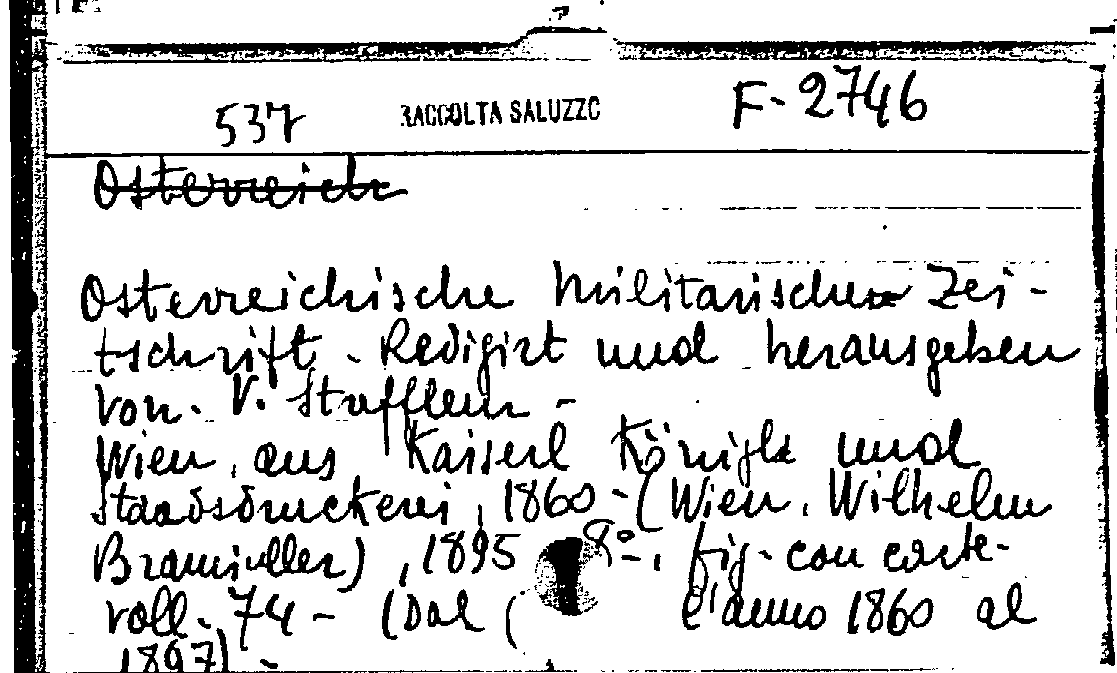 537 RACCOLTA SALUZZO F-2746
Osterreich
Osterreichische Militarische Zei-
tschrift - Redigirt und herausgeben
von. V. Streffleur -
Wien, aus Kaiserl Königle und
Staadsdruckerei, 1860 - (Wien. Wilhelm
Braumüller), 1895 8º-, fig-con carte-
voll. 74 - (Dal ( l'anno 1860 al
1897) -